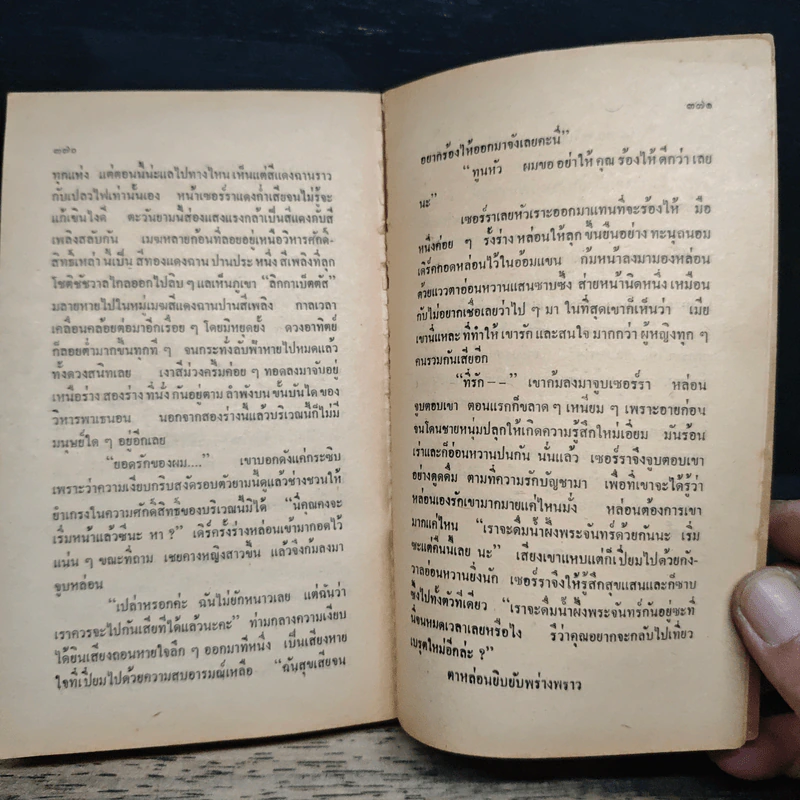 ๓๗๐
ทุกแห่ง แต่ตอนนี้น่ะแลไปทางไหน เห็นแต่สีแดงฉานราว
กับเปลวไฟเท่านั้นเอง หน้าเซอร์ราแดงก่ำเสียจนไม่รู้จะ
แก้เขินไงดี ตะวันยามนี้ส่องแสงแรงกล้าเป็นสีแดงกับสี
เพลิงสลับกัน เมฆหลายก้อนที่ลอยอยู่เหนือวิหารศักดิ์-
สิทธิ์เหล่า นี้เป็น สีทองแดงฉาน ปานประ หนึ่ง สีเพลิงที่ลุก
โชติชัชวาลไกลออกไปลิบ ๆ แลเห็นภูเขา "ลิกกาเบ็ตตัส"
มลายหายไปในหมู่เมฆสีแดงฉานปานสีเพลิง กาลเวลา
เคลื่อนคล้อยต่อมาอีกเรื่อย ๆ โดยมิหยุดยั้ง ดวงอาทิตย์
ก็ลอยต่ำมากขึ้นทุกที ๆ จนกระทั่งลับฟ้าหายไปหมดแล้ว
ทั้งดวงสนิทเลย เงาสีม่วงครึ้มค่อย ๆ ทอดลงมาจับอยู่
เหนือร่าง สองร่าง ที่นั่ง กันอยู่ตาม ลำพังบน ขั้นบันได ของ
วิหารพาเธนอน นอกจากสองร่างนี้แล้วบริเวณนี้ก็ไม่มี
มนุษย์ใด ๆ อยู่อีกเลย
"ยอดรักของผม...." เขาบอกดังแค่กระซิบ
เพราะว่าความเงียบกริบสงัดรอบตัวยามนี้ดูแล้วช่างชวนให้
ยำเกรงในความศักดิ์สิทธิ์ของบริเวณนี้มิได้ "นี่คุณคงจะ
เริ่มหนาแล้วซีนะ หา ?" เดิร์ครั้งร่างหล่อนเข้ามากอดไว้
แน่น ๆ ขณะที่ถาม เชยคางหญิงสาวขึ้น แล้วจึงก้มลงมา
จูบหล่อน
"เปล่าหรอกค่ะ ฉันไม่ยักหนาวเลย แต่ฉันว่า
เราควรจะไปกันเสียทีได้แล้วนะคะ" ท่ามกลางความเงียบ
ได้ยินเสียงถอนหายใจลึก ๆ ออกมาทีหนึ่ง เป็นเสียงหาย
ใจที่เปี่ยมไปด้วยความสบอารมณ์เหลือ "ฉันสุขเสียจน
๓๗๑
อยากร้องไห้ออกมาจังเลยคะนี่"
"ทูนหัว ผมขอ อย่าให้ คุณ ร้องไห้ ดีกว่า เลย
นะ"
เซอร์ราเลยหัวเราะออกมาแทนที่จะร้องไห้ มือ
หนึ่งค่อย ๆ รั้งร่าง หล่อนให้ลุก ขึ้นยืนอย่าง ทะนุถนอม
เดิร์คกอดหล่อนไว้ในอ้อมแขน ก้มหน้าลงมามองหล่อน
ด้วยแววตาอ่อนหวานแสนซาบซึ้ง ส่ายหน้านิดหนึ่ง เหมือน
กับไม่อยากเชื่อเลยว่าไป ๆ มา ในที่สุดเขาก็เห็นว่า เมีย
เขานี่แหละ ที่ทำให้ เขารัก และสนใจ มากกว่า ผู้หญิงทุก ๆ
คนรวมกันเสียอีก
"ที่รัก – –" เขาก้มลงมาจูบเซอร์รา หล่อน
จูบตอบเขา ตอนแรกก็ขลาด ๆ เหนียม ๆ เพราะอายก่อน
จนโดนชายหนุ่มปลุกให้เกิดความรู้สึกใหม่เอี่ยม มันร้อน
เร่าและก็อ่อนหวานปนกัน นั่นแล้ว เซอร์ราจึงจูบตอบเขา
อย่างดูดดื่ม ตามที่ความรักบัญชามา เพื่อที่เขาจะได้รู้ว่า
หล่อนเองรักเขามากมายแค่ไหนมั่ง หล่อนต้องการเขา
มากแค่ไหน "เราจะดื่มน้ำผึ้งพระจันทร์ด้วยกันนะ เริ่ม
ซะแต่คืนนี้เลย นะ" เสียงเขาแหบแต่ก็เปี่ยมไปด้วยกัง-
วาลอ่อนหวานยิ่งนัก เซอร์ราจึงให้รู้สึกสุขแสนและก็ซาบ
ซึ้งไปทั้งตัวทีเดียว "เราจะดื่มน้ำผึ้งพระจันทร์กันอยู่ซะที่
นี่จนหมดเวลาเลยหรือไง รึว่าคุณอยากจะกลับไปเที่ยว
เบรุตใหม่อีกล่ะ ?"
ตาหล่อนยิบยับพร่างพราว